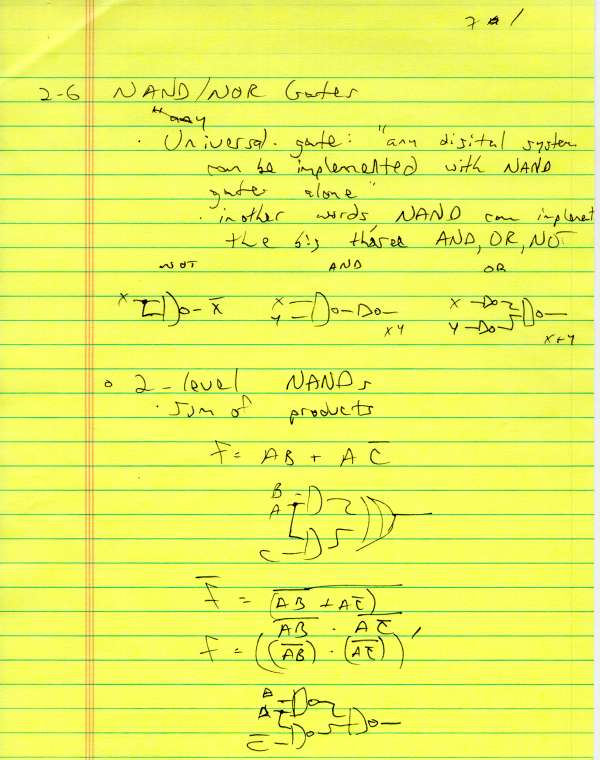 7 1
2-6 NAND/NOR Gates
"any
· Universal gate: "any digital system
can be implemented with NAND
gates alone"
· in other words, NAND can implement
the big three AND, OR, NOT
NOT AND OR
X X̅ X Y XY X Y X+Y
2-level NANDs
· Sum of products
F = AB + AC̅
B
A
C
F̅ = (AB + AC̅)
AB · AC̅
F = ((AB) · (AC̅))'
B
A
C̅